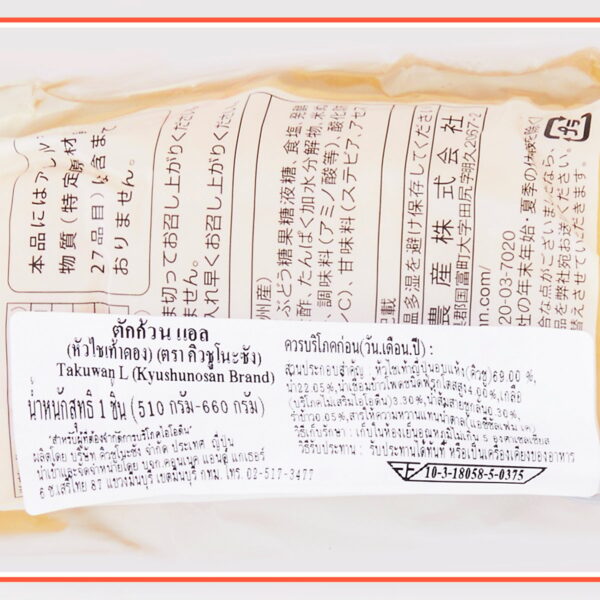 本品にはアレル
物質(特定原材
27品目)は含まて
おりません。
ま切ってお召し上がりくださ
入れ早くお召し上がりくださ
州産)
ぶどう糖果糖液糖、食塩、発酵
酢、たんぱく加水分解物、米ぬ
、調味料(アミノ酸等)、酸化防
C)、甘味料(ステビア、アセス
記載
温多湿を避け保存してくださ
農産株式会社
郡国富町大字田尻字湖久2067-2
nn.com/
20-03-7020
社の年末年始・夏季の休暇を除く
プラ
ตักก้วน แอล
(หัวไชเท้าดอง) (ตรา คิวชูโนะซัง)
Takuwan L (Kyushunosan Brand)
น้ำหนักสุทธิ 1 ชิ้น (510 กรัม-660 กรัม)
"สำหรับผู้ที่ต้องจำกัดการบริโภคไอโอดีน"
ผลิตโดย บริษัท คิวชูโนะซัง จำกัด ประเทศ ญี่ปุ่น
6 ซ.เสรีไทย 87 แขวงมีนบุรี เขตมีนบุรี กทม. โทร. 02-517-3477
ควรบริโภคก่อน(วัน.เดือน.ปี) :
ส่วนประกอบสำคัญ : หัวไชเท้าญี่ปุ่นอมแห้ง(คิวชู)69.00 %,
น้ำ22.05%,น้ำเชื่อมข้าวโพดชนิดฟรุกโตสสูง4.00%, เกลือ
(บริโภคไม่เสริมไอโอดีน)3.30%,น้ำส้มสายชูกลั่น0.30%,รำ
ข้าว0.05%,สารให้ความหวานแทนน้ำตาล(แอซีซัลเฟม เค)
วิธีเก็บรักษา : เก็บในห้องเย็นอุณหภูมิไม่เกิน 5 องศาเซลเซียส
วิธีรับประทาน : รับประทานได้ทันที หรือเป็นเครื่องเคียงของอาหาร
10-3-18058-5-0375